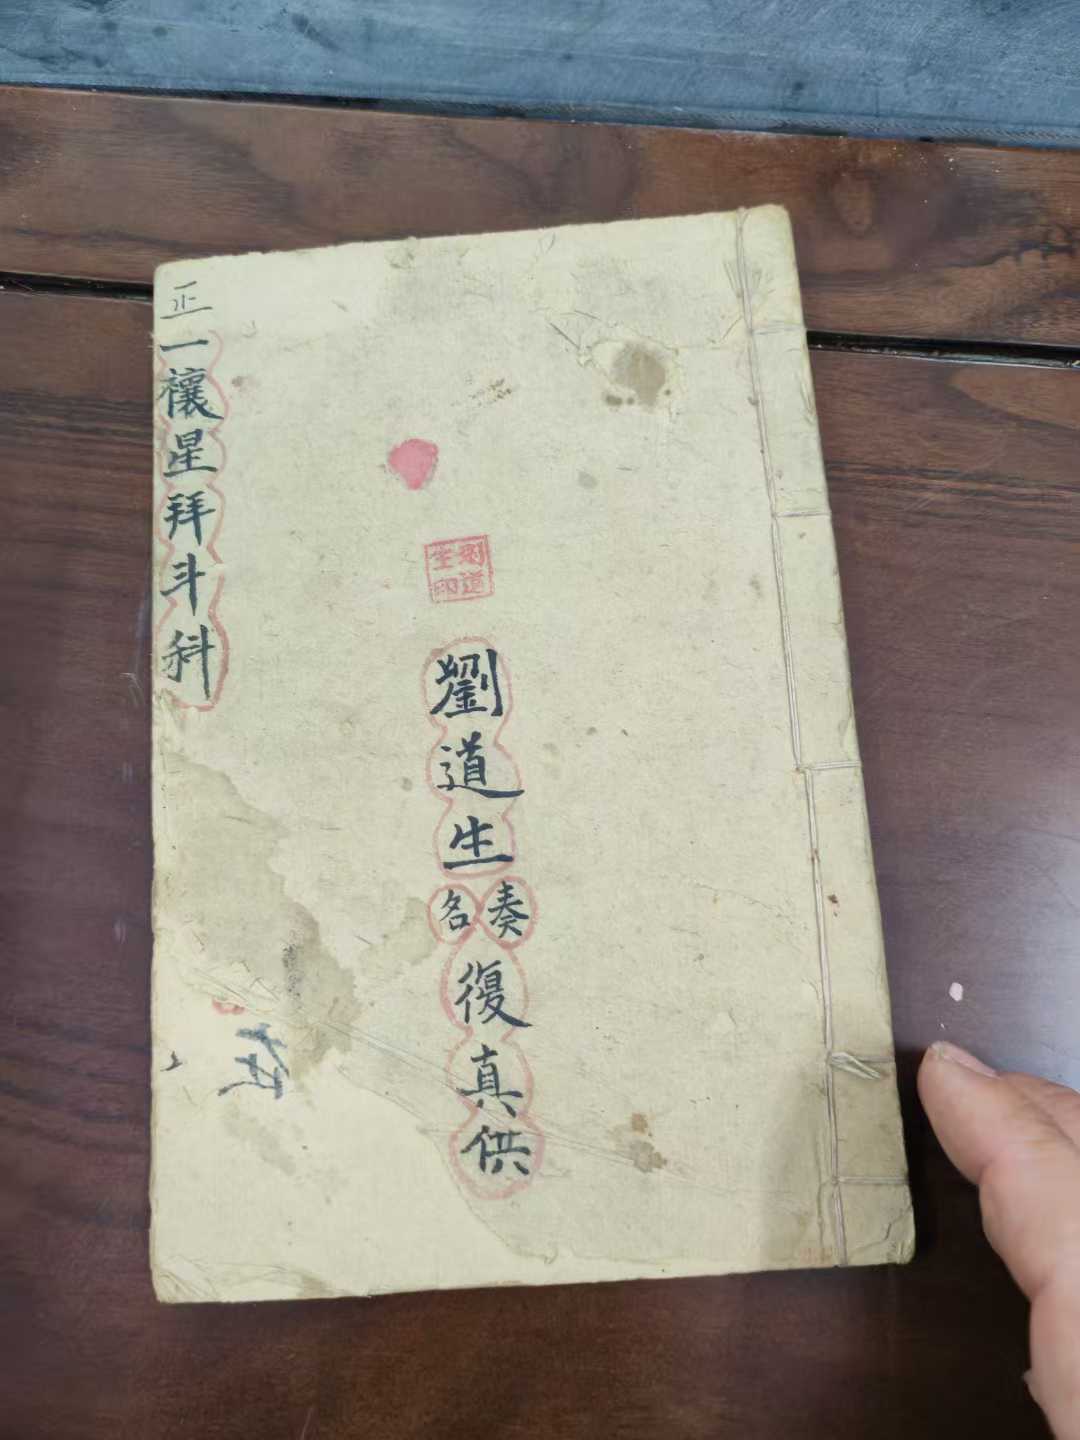 劉道生印
劉道生奏名復真供
正一禳星拜斗科
在